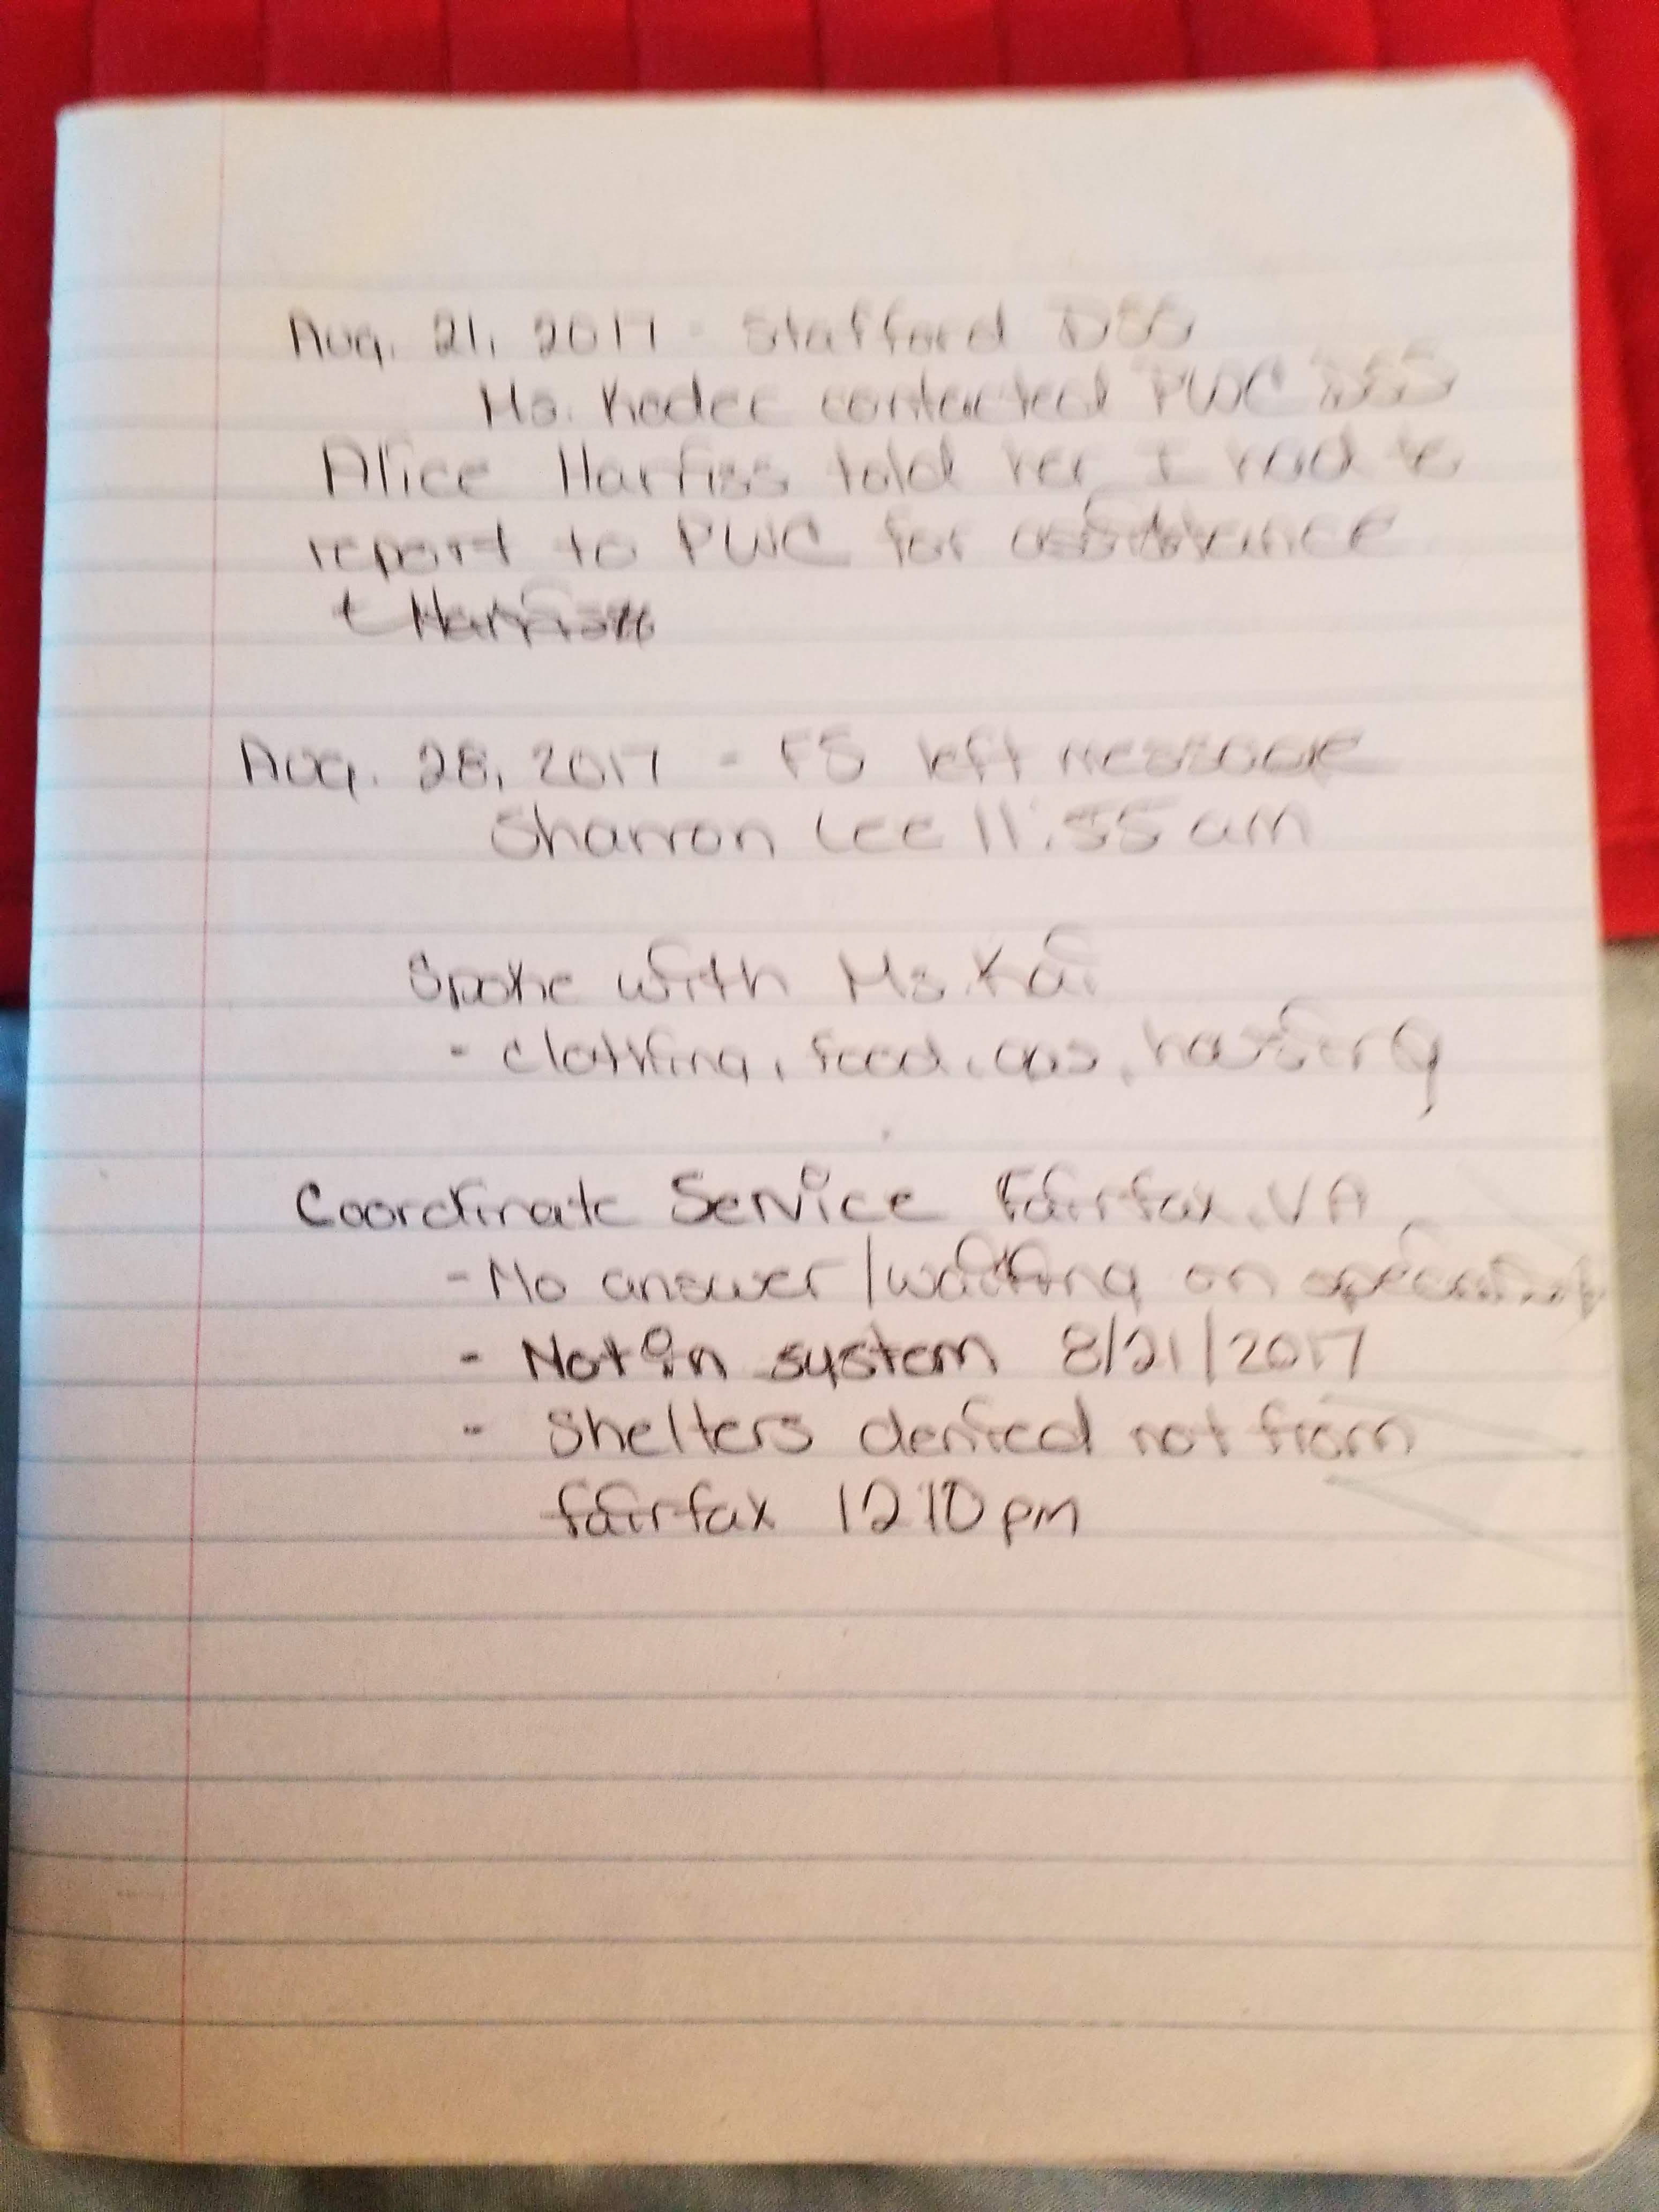 Aug. 21, 2017 - Stafford DSS
Ms. Kadec contacted PWC DSS
Alice Harfiss told her I had to
report to PWC for assistance
Aug. 28, 2017 - FS left message
Sharron Lee 11:55 am
Spoke with Ms. Kai
- clothing, food, gas, housing
Coordinate Service Fairfax, VA
- No answer / waiting on
- Not in system 8/21/2017
- Shelters denied not from
fairfax 1210 pm